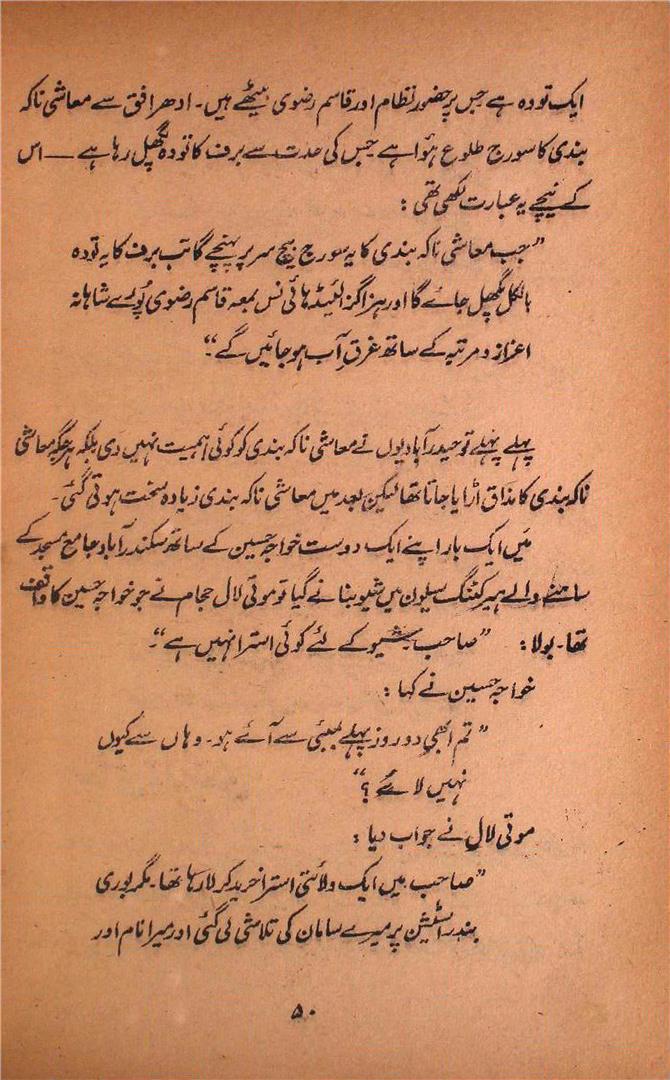 ایک تودہ ہے جس پر حضور نظام اور قاسم رضوی بیٹھے ہیں۔ ادھر افق سے معاشی ناکہ
بندی کا سورج طلوع ہؤا ہے جس کی حدت سے برف کا تودہ پگھل رہا ہے — اس
کے نیچے یہ عبارت لکھی تھی :
”جب معاشی ناکہ بندی کا یہ سورج بیچ سر پر پہنچے گا تب برف کا یہ تودہ
بالکل پگھل جائے گا اور ہز اگزالٹیڈ ہائی نس بمعہ قاسم رضوی پُورے شاہانہ
اعزاز و مرتبہ کے ساتھ غرقِ آب ہو جائیں گے“۔
پہلے پہلے تو حیدرآبادیوں نے معاشی ناکہ بندی کو کوئی اہمیت نہیں دی بلکہ ہر جگہ معاشی
ناکہ بندی کا مذاق اڑایا جاتا تھا لیکن بعد میں معاشی ناکہ بندی زیادہ سخت ہوتی گئی۔
میں ایک بار اپنے ایک دوست خواجہ حسین کے ساتھ سکندرآباد جامع مسجد کے
سامنے والے ہیر کٹنگ سیلون میں شیو بنانے گیا تو موتی لال حجام نے جو خواجہ حسین کا واقف
تھا۔ بولا : ”صاحب شیو کے لئے کوئی استرا نہیں ہے“۔
خواجہ حسین نے کہا :
”تم ابھی دو روز پہلے بمبئی سے آئے ہو۔ وہاں سے کیوں
نہیں لائے؟“
موتی لال نے جواب دیا :
”صاحب میں ایک ولائتی استرا خرید کر لا رہا تھا۔ مگر بوری
بندر اسٹیشن پر میرے سامان کی تلاشی لی گئی اور میرا نام اور
۵۰